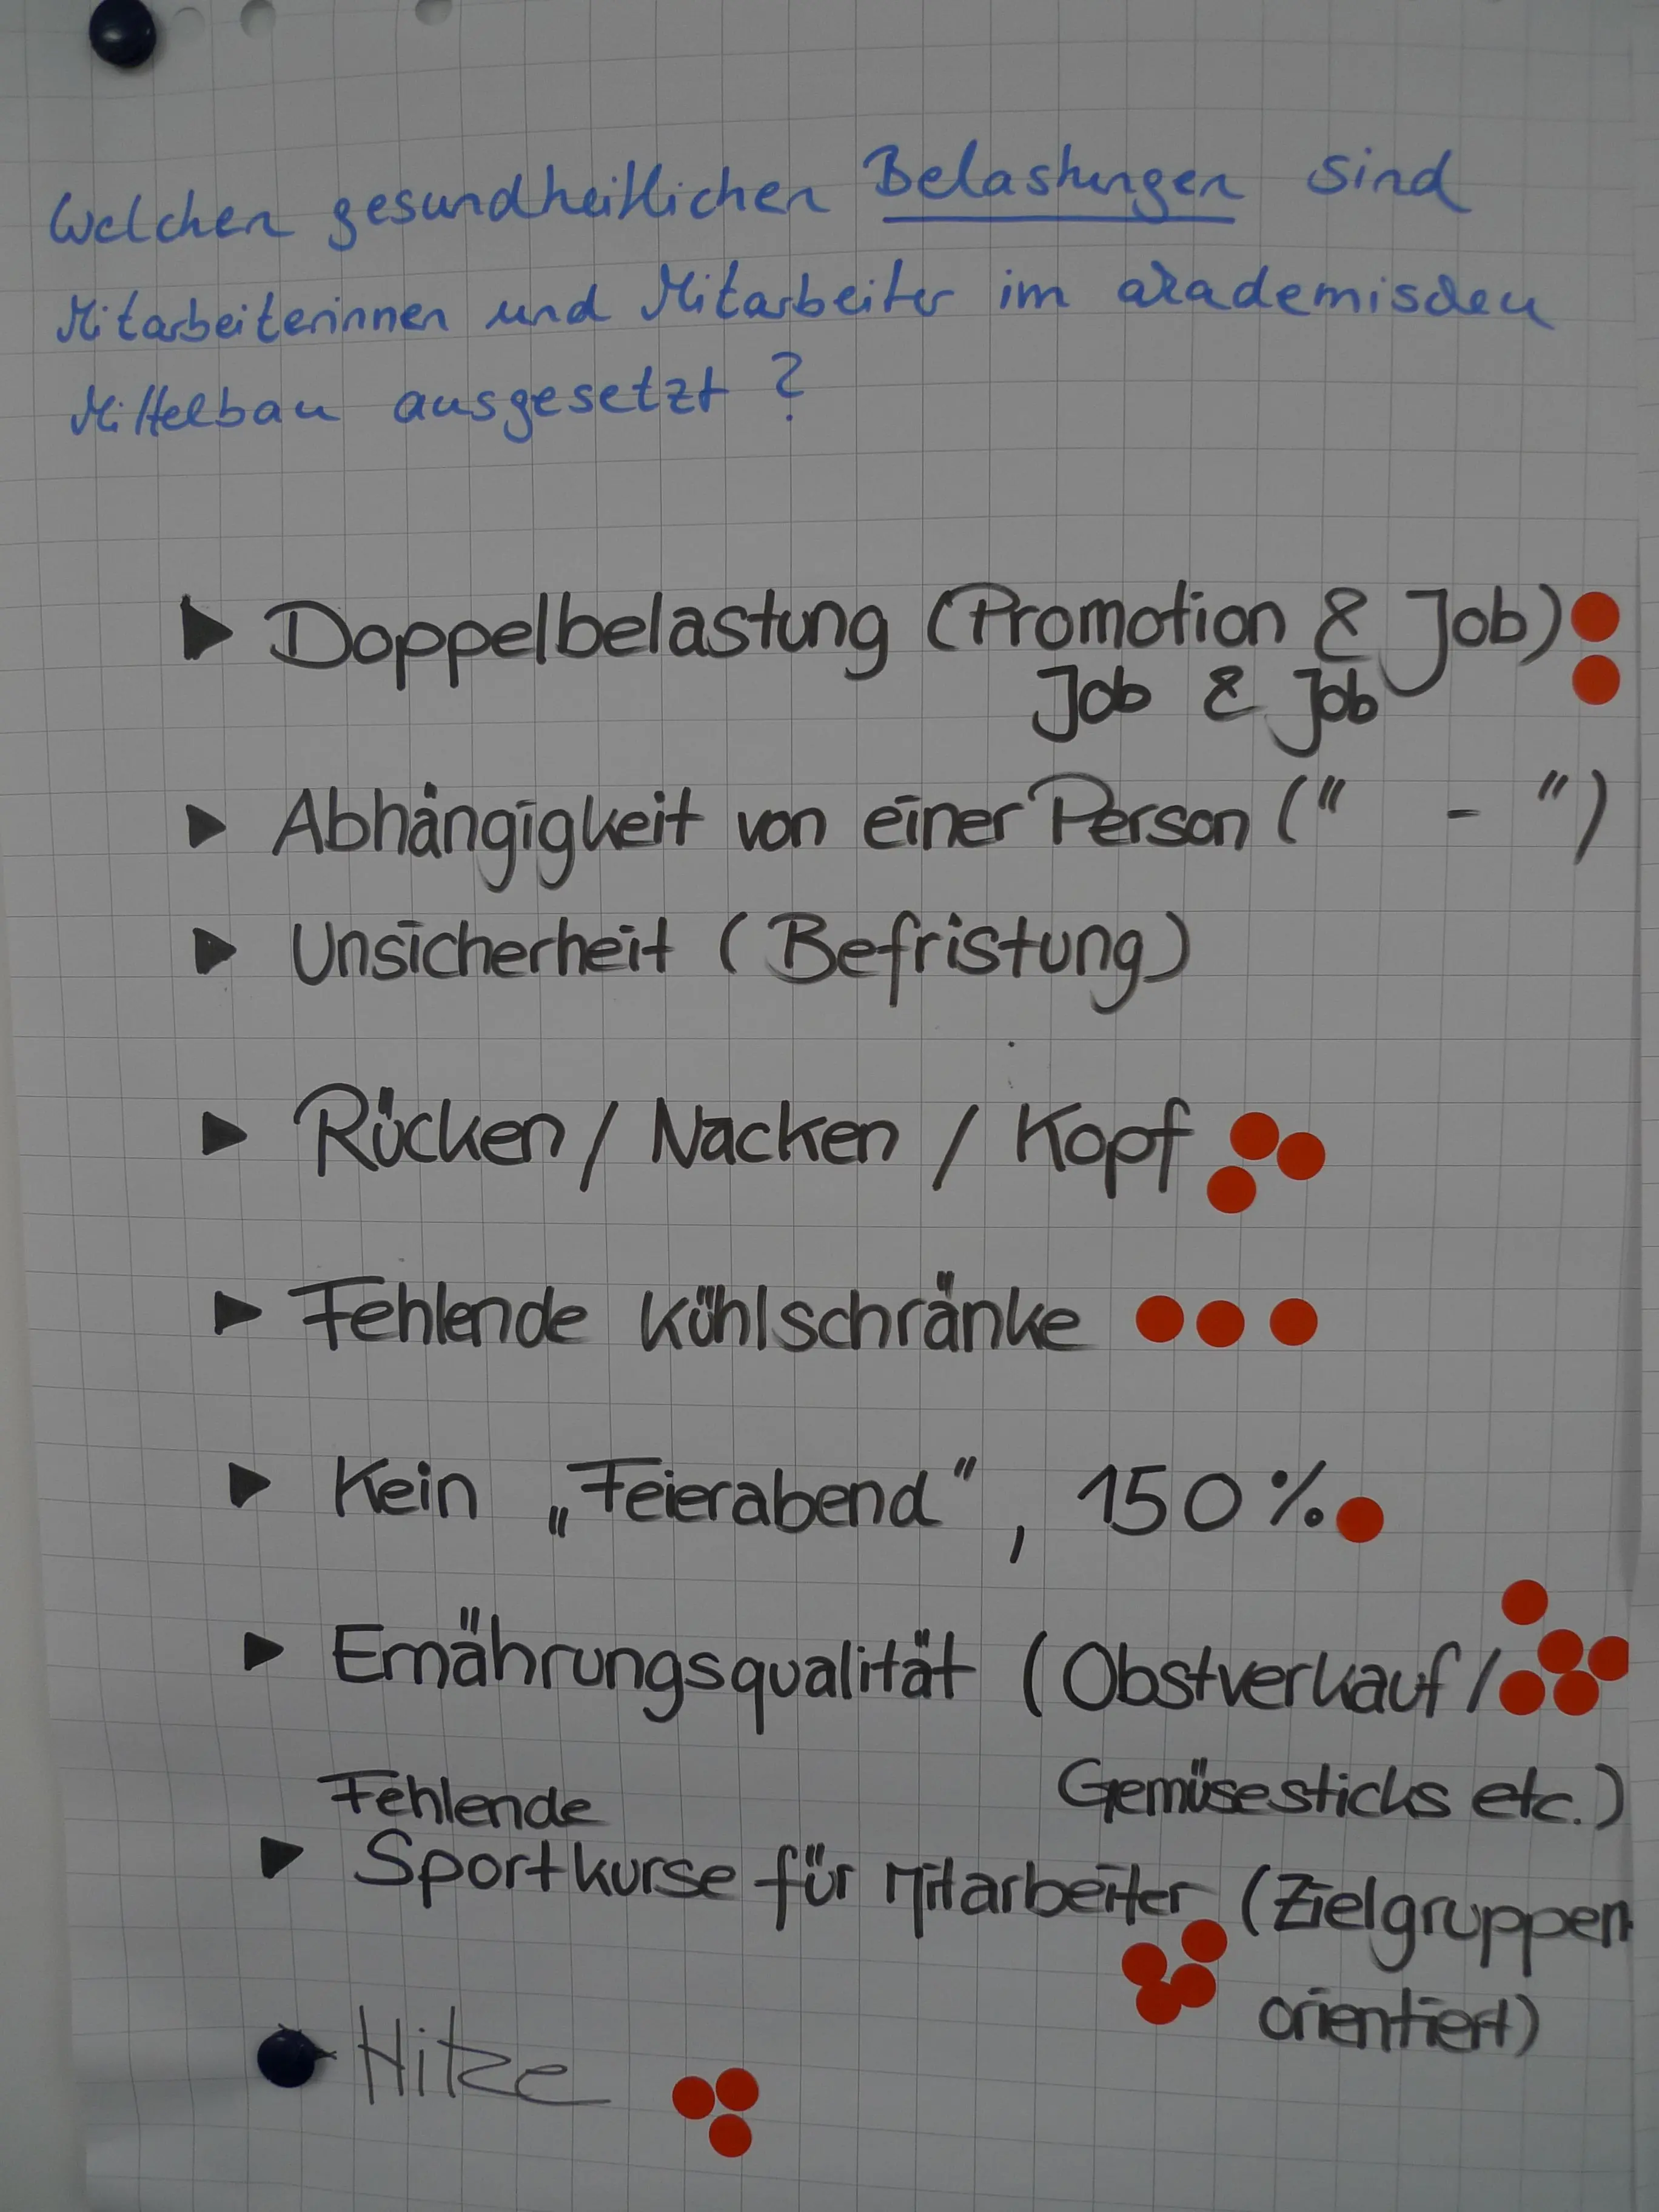 Welchen gesundheitlichen Belastungen sind
Mitarbeiterinnen und Mitarbeiter im akademischen
Mittelbau ausgesetzt?
▶ Doppelbelastung (Promotion & Job)
Job & Job
▶ Abhängigkeit von einer Person (" - ")
▶ Unsicherheit (Befristung)
▶ Rücken / Nacken / Kopf
▶ Fehlende Kühlschränke
▶ Kein „Feierabend", 150%
▶ Ernährungsqualität (Obstverkauf /
Gemüsesticks etc.)
Fehlende
▶ Sportkurse für Mitarbeiter (Zielgruppen
orientiert)
Hitze